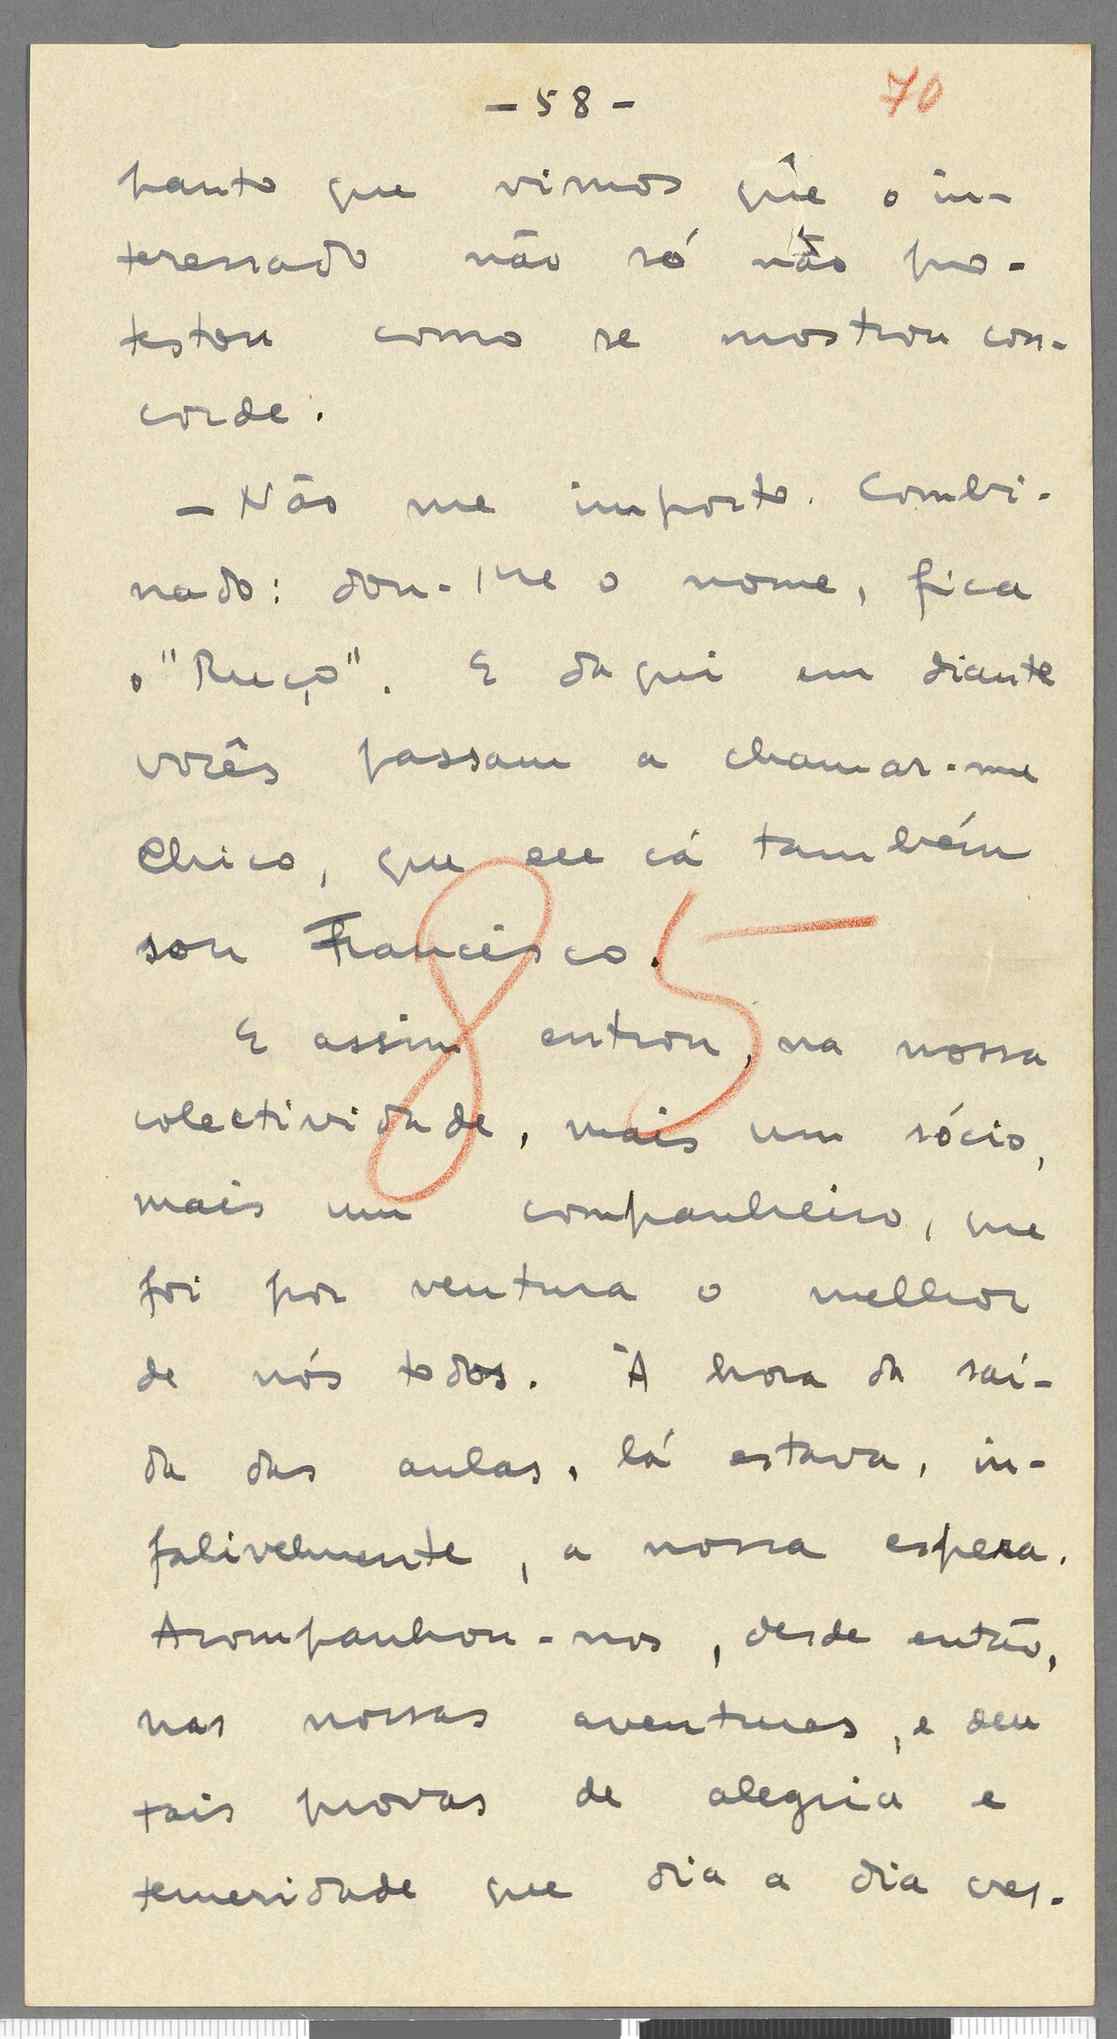 - 58 -
70
panto que vimos que o in-
teressado não só não pro-
testou como se mostrou con-
corde.
- Não me importo. Combi-
nado: dou-lhe o nome, fica
o "Ruço". E daqui em diante
vocês passam a chamar-me
Chico, que eu cá também
sou Francisco.
85
E assim entrou, na nossa
colectividade, mais um sócio,
mais um companheiro, que
foi por ventura o melhor
de nós todos. À hora da saí-
da das aulas, lá estava, in-
falivelmente, a nossa espera.
Acompanhou-nos, desde então,
nas nossas aventuras, e deu
tais provas de alegria e
temeridade que dia a dia cres-